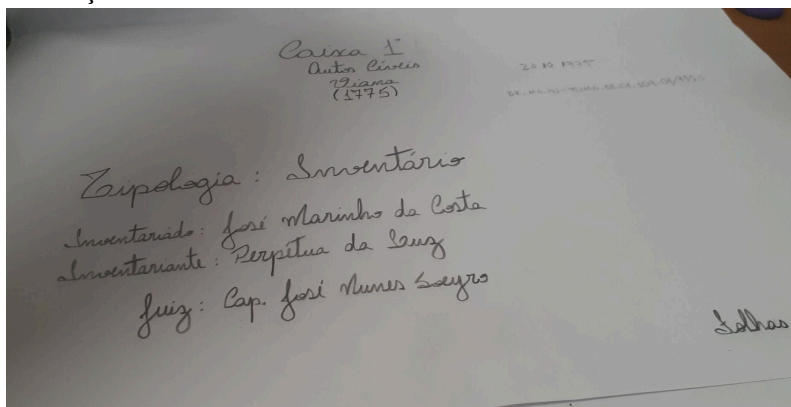 Caixa 1
Autos Cíveis
Viana
(1775)
Tipologia: Inventário
Inventariado: José Marinho da Costa
Inventariante: Perpítua da Luz
Juiz: Cap. José Nunes Soeyro
Folhas